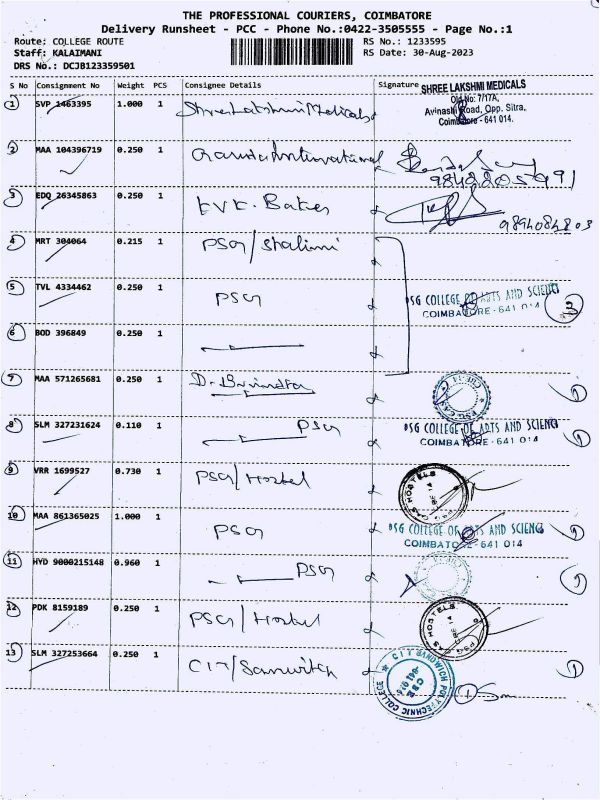 THE PROFESSIONAL COURIERS, COIMBATORE
Delivery Runsheet - PCC - Phone No.:0422-3505555 - Page No.:1
Route: COLLEGE ROUTE RS No.: 1233595
Staff: KALAIMANI RS Date: 30-Aug-2023
DRS No.: DCJB123359501
S No Consignment No Weight PCS Consignee Details Signature
SHREE LAKSHMI MEDICALS
Old No: 7/17A,
Avinashi Road, Opp. Sitra,
Coimbatore - 641 014.
1 SVP 1463395 1.000 1 Shree Lakshmi Medicals
2 MAA 104396719 0.250 1 International
9842205991
3 EDQ 26345863 0.250 1 KVK. Bakes
9894084803
4 MRT 304064 0.215 1 PSG/Shalini
5 TVL 4334462 0.250 1 PSG
PSG COLLEGE OF ARTS AND SCIENCE
COIMBATORE - 641 014
6 BOD 396849 0.250 1
7 MAA 571265681 0.250 1
8 SLM 327231624 0.110 1 PSG
PSG COLLEGE OF ARTS AND SCIENCE
COIMBATORE - 641 014
9 VRR 1699527 0.730 1 PSG/Hostel
10 MAA 861365025 1.000 1 PSG
PSG COLLEGE OF ARTS AND SCIENCE
COIMBATORE - 641 014
11 HYD 9000215148 0.960 1 PSG
12 PDK 8159189 0.250 1 PSG/Hostel
PSG CAS HOSTELS
13 SLM 327253664 0.250 1 CIT/Sanwitch
CIT SANDWICH POLYTECHNIC COLLEGE
CBE
641 014